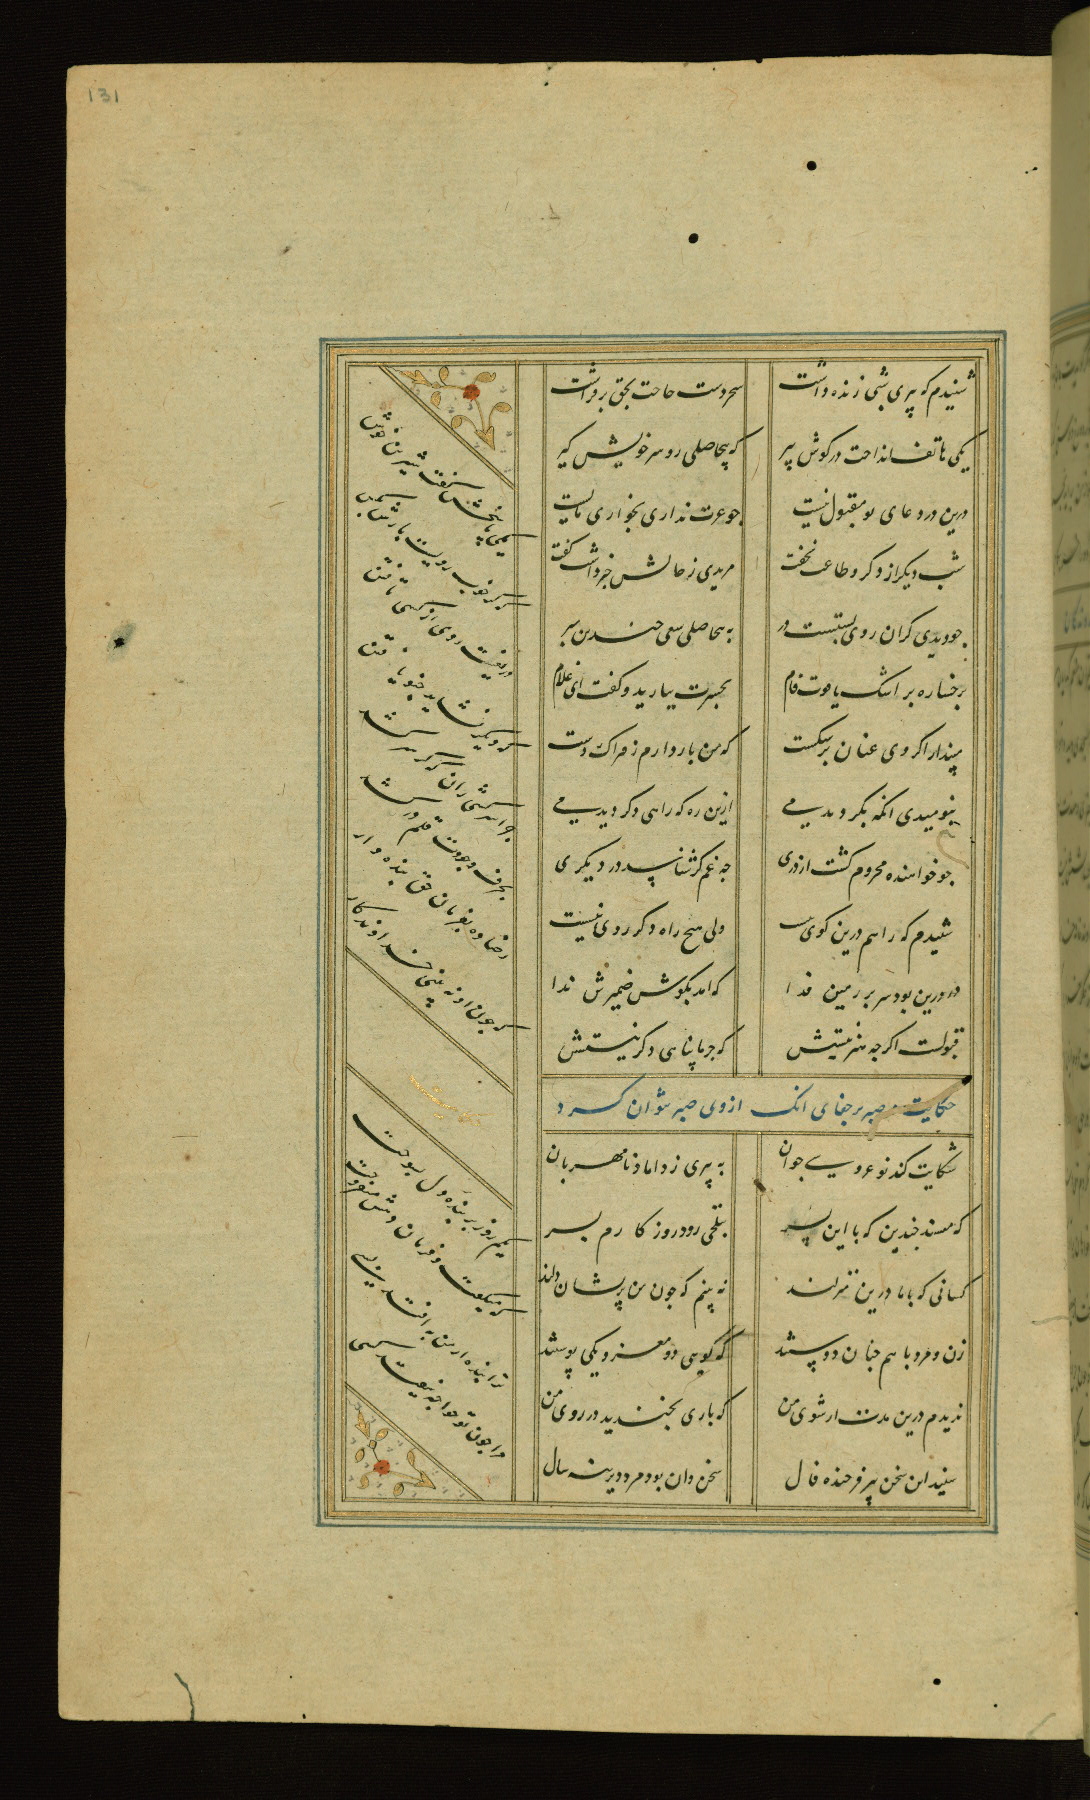 131
شنیدم که پیری شبی زنده داشت سحر دست حاجت بحق برفراشت
یکی هاتف انداخت در کوش پیر که بیحاصلی رو سر خویش کیر
درین در دعای تو مقبول نیست جو عزت نداری بخواری مایست
شب دیکر از ذکر و طاعت نخفت مریدی ز حالش خبر داشت کفت
جو دیدی کزان روی بستست در به بیحاصلی سعی جندین مبر
برخساره بر اشک یاقوت فام بحسرت ببارید و کفت ای غلام
مپندار اکر وی عنان برسکست که من باز دارم ز فتراک دست
بنومیدی انکه بکردیدمی ازین ره که راهی دکر دیدمی
جو خواهنده محروم کشت از دری جه غم کر شناسد در دیکری
شنیدم که راهم درین کوی نیست ولی هیچ راه دکر روی نیست
درین بود سر بر زمین فدا که امد بکوش ضمیرش ندا
قبولست اکرجه هنر نیستش که جز ما پناهی دکر نیستش
حکایت صبر بر جفای انک ازولی صبر نتوان کرد
شکایت کند نوعروسی جوان به پیری ز داماد نامهربان
که مپسند جندین که با این پسر بتلخی رود روزکارم بسر
کسانی که با ما درین منزلند نه بینم که جون من پریشان دلند
زن و مرد با هم جنان دوستند که کویی دو مغز و یکی پوستند
ندیدم درین مدت از شوی من که باری بخندید در روی من
شنید این سخن پیر فرخنده فال سخن دان بود مرد دیرینه سال
یکی پاسخش کفت شیرین و خوش
که کر خوب رویست بارش بکش
دریغست روی از کسی تافتن
که دیکر نشاید جنو یافتن
جرا سرکشی زان که کر سر کشد
بحرف وجودت قلم درکشد
رضا ده بفرمان حق بنده وار
که جون او نه بینی خداوندکار
حکایت
یکم روز بر بنده دل بسوخت
که میکفت و فرمان دهش میفروخت
ترا بنده از من به افتد بسی
مرا جون تو خواجه نیفتد کسی